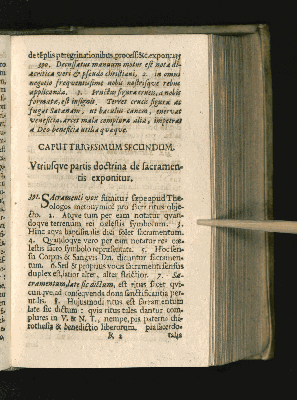 de téplis peregrinationibus, processi&c.exponatq
390. Decussatus manuum motus est nota di-
acritica veri & pseudo christiani, 2. in omni
negotio frequentissimè nobis nostrisque rebus
applicanda. 3. Fructus figura crucis, a nobis
formatæ, est insignis. Terret crucis figura ac
fugat Satanam, ut baculus canem, enervat
veneficia, arcet mala complura alia, impetrat
a Deo beneficia utilia quæque.
CAPUT TRIGESIMUM SECUNDUM.
Vtriusqve partis doctrina de sacramen-
tis exponitur.
391. Sacramenti vox sumitur sæpe apud The-
ologos metonymicè pro scripturæ obje-
cto. 2. Atqve tum per eam notatur quan-
doqve terrenum rei cœlestis symbolum. 3.
Hinc aqva baptismi dici solet sacramentum.
4. Quandoqve vero per eam notatur res cœ-
lestis sacro symbolo repræsentata. 5. Hoc sen-
su Corpus & Sangvis Dni. dicuntur sacramen-
tum. 6. Sed & proprius vocis sacramenti sensus
duplex est, latior alter, alter strictior. 7. Sa-
cramentum, late sic dictum, est ritus sacer qvi-
cunqve, ad conseqvenda dona sanctificantia per-
utilis. 8. Hujusmodi ritus est sacramentum
late sic dictum: qvia ritus tales dantur com-
plures in V. & N. T., nempe, pia paterna chi-
rothesia & benedictio liberorum, pia sacerdo-
R 2 talis